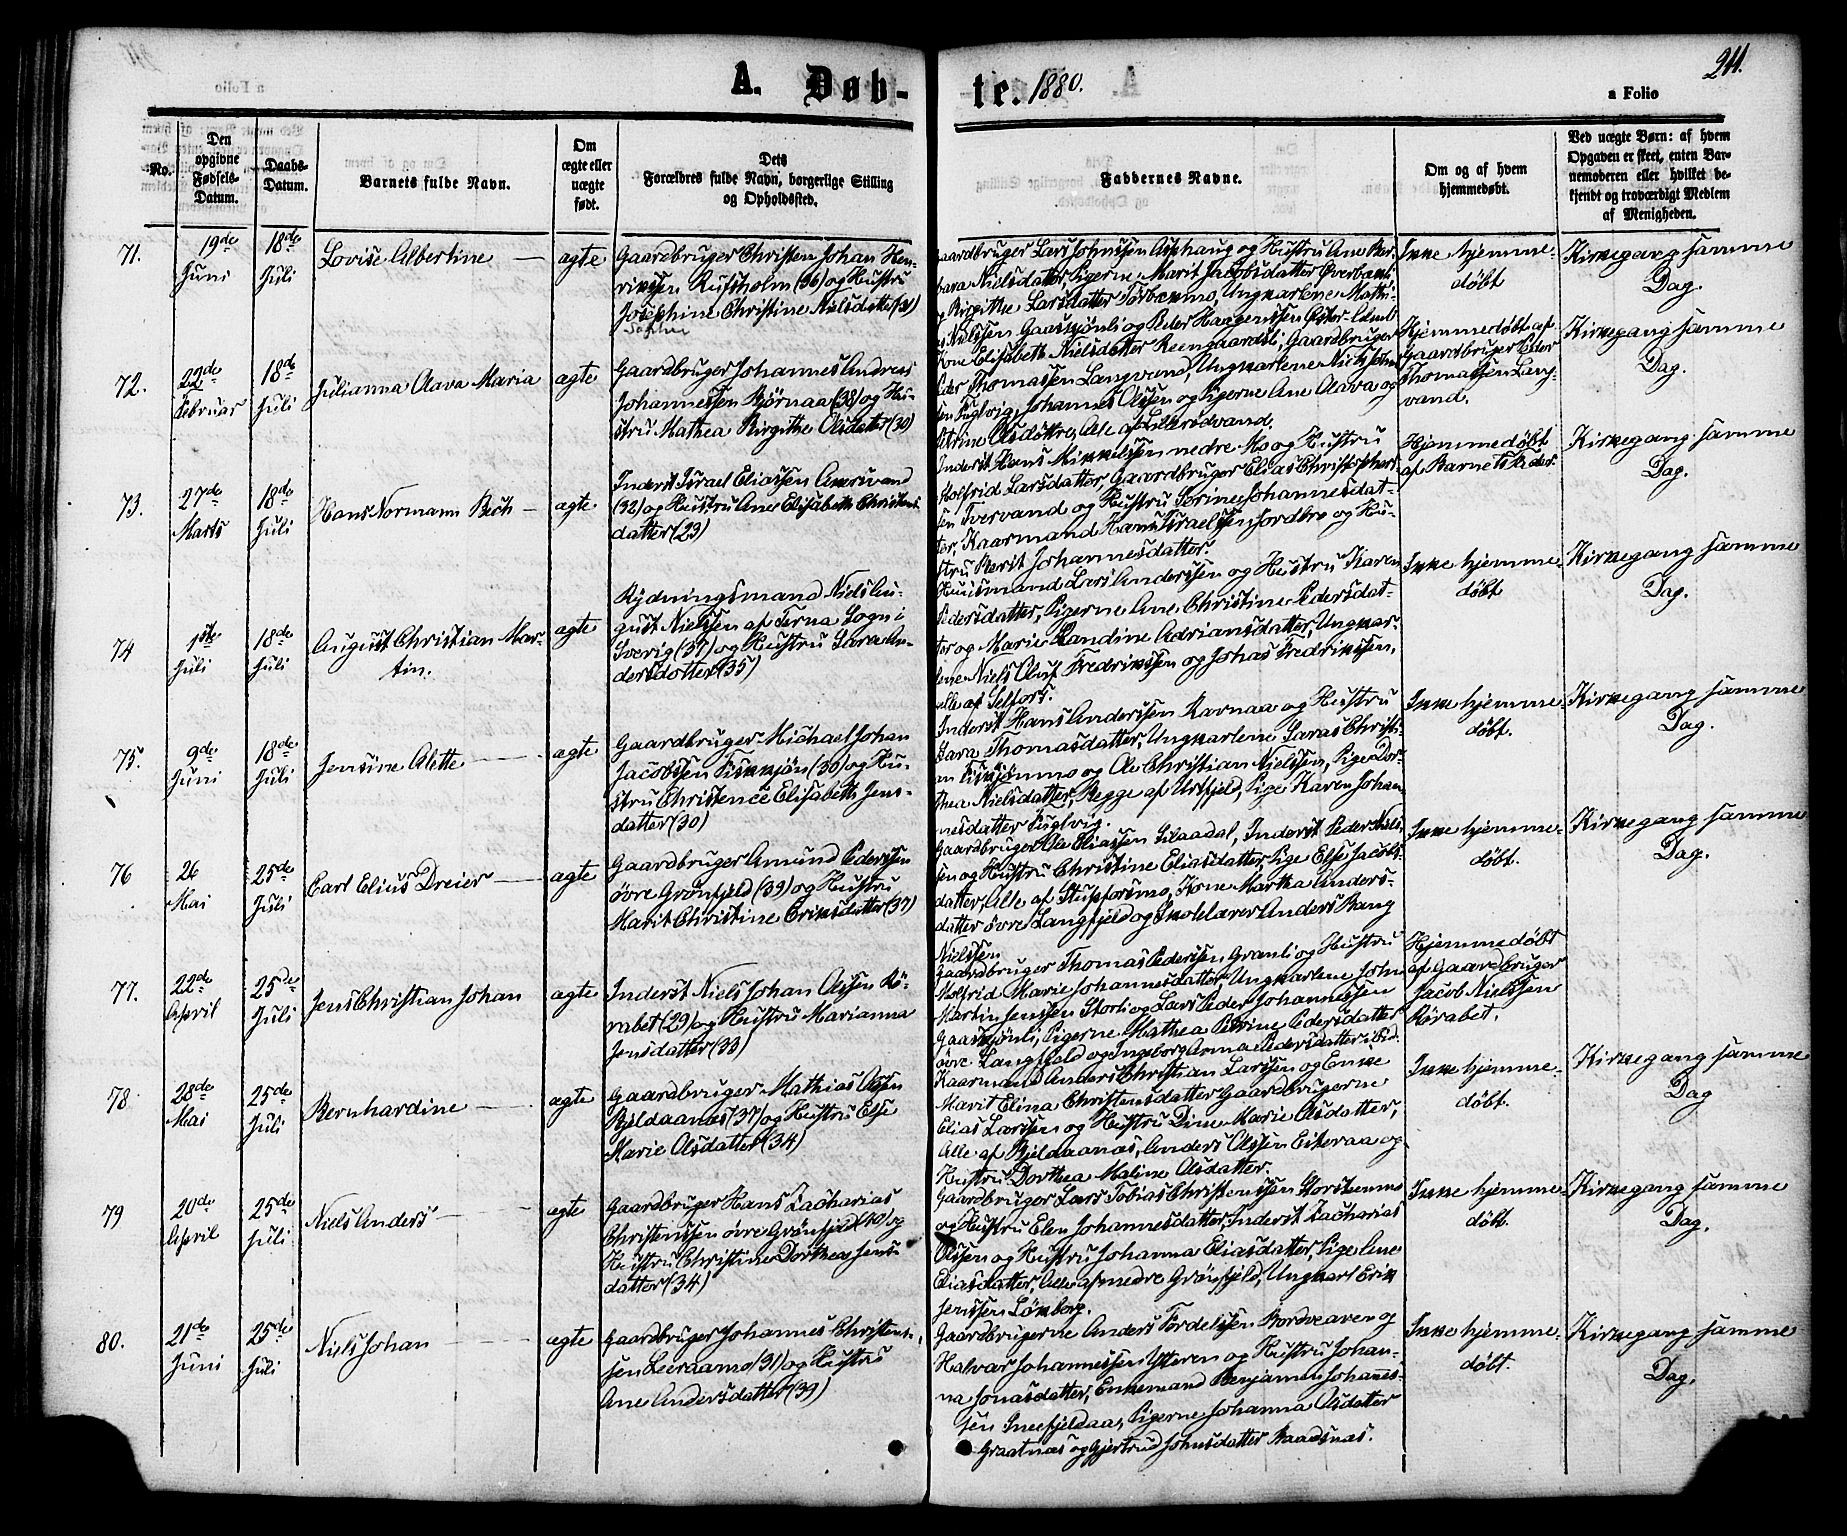 A. Døb-
te. 1880.
211.
a Folio
No.
Den opgivne Fødsels-Datum.
Daabs-Datum.
Barnets fulde Navn.
Om ægte eller uægte født.
Dets Forældres fulde Navn, borgerlige Stilling og Opholdssted.
Faddernes Navne.
Om og af hvem hjemmedøbt.
Ved uægte Børn: af hvem Opgaven er skeet, enten Barnemoderen eller hvilket bekjendt og troværdigt Medlem af Menigheden.
71.
19de Juni
18de Juli
Lovise Albertine
ægte
Gaardbruger Christen Johan Hen-
riksen Rufsholm (36) og Hustru
Josephine Christine Nielsdatter (31)
Gaardbruger Lars Johnssen Asphaug og Hustru Ane Bar-
bara Nielsdatter, Pigerne Marit Jacobsdatter Øverbæmo
og Birgithe Larsdatter Torbæmmo, Ungkarlene Mathi-
as Nielssen Gaaskjønli og Peder Haagenssen
Ikke hjemme-
døbt
Kirkegang samme
Dag.
72.
22de Februar
18de Juli
Julianna Olava Maria
ægte
Gaardbruger Johannes Andreas
Johannessen Bjørnaa (38) og Hu-
stru Mathea Birgithe Olsdatter (30)
Kone Elisabeth Nielsdatter Reengaardsli, Gaardbruger
Peder Thomassen Langvand, Ungkarlene Niels John-
sen Fuglvig, Johannes Olssen og Pigerne Ane Olava og
Petrine Olsdøttre, Alle af
Hjemmedøbt af
Gaardbruger Peder
Thomassen Lang-
vand.
Kirkegang samme
Dag.
73.
27de Marts
18de Juli
Hans Normann Bech
ægte
Inderst Israel Eliassen
(32) og Hustru Ane Elisabeth Christens-
datter (23)
Inderst Hans Mikkelssen nedre Mo og Hustru
Holfrid Larsdatter, Gaardbruger Elias Christophers-
sen Tvervand og Hustru Serine Johannesdat-
ter, Kaarmand Hans Israelssen Jordbro og Hu-
stru Berit Johannesdatter.
Hjemmedøbt
af Barnets Fader
Kirkegang samme
Dag.
74
1ste Juli
18de Juli
August Christian Mar-
tin.
ægte
Rydningsmand Niels Au-
gust Nielssen af Terna Sogn i
Sverig (37) og Hustru Sara An-
dersdotter (35)
Huusmand Lars Anderssen og Hustru Karen
Pedersdatter, Pigerne Ane Christine Pedersdat-
ter og Marie Landine Adriansdatter, Ungkar-
lene Niels Oluf Fredrikssen og Johas Fredrikssen,
alle af Selfors.
Ikke hjemme-
døbt
Kirkegang samme
Dag.
75.
9de Juni
18de Juli
Jensine Alette
ægte
Gaardbruger Michael Johan
Jacobssen Fiskkjøn (30) og Hu-
stru Christence Elisabeth Jens-
datter (30)
Inderst Hans Anderssen Ravnaa og Hustru
Sara Thomasdatter, Ungkarlene Saras Christi-
an Fiskkjønmo og Ole Christian Nielssen, Pige Dor-
thea Nielsdatter, Begge af Urtfjeld, Pige Karen Johan-
nesdatter Fuglvig.
Ikke hjemme-
døbt.
Kirkegang samme
Dag.
76
26 Mai
25de Juli
Carl Elius Dreier
ægte
Gaardbruger Amund Pederssen
øvre Grønfjeld (39) og Hustru
Marit Christine Eriksdatter (37)
Gaardbruger Ole Eliassen Slaadal, Inderst Peder Niels-
sen og Hustru Christine Eliasdatter, Pige Else Jacobs-
datter, Alle af Stupforsmo, Kone Martha Anders-
datter øvre Langfjeld og Skolelærer Anders Bang
Nielssen
Ikke hjemme-
døbt.
Kirkegang samme
Dag.
77.
22de April
25de Juli
Jens Christian Johan
ægte
Inderst Niels Johan Olssen Rø-
rabet (29) og Hustru Marianna
Jensdatter (33)
Gaardbruger Thomas Pederssen Granli og Hustru
Holfrid Marie Johannesdatter, Ungkarlene John
Martin Jenssen Storli og Lars Peder Johannessen
Gaaskjønli, Pigerne Mathea Petrine Pedersdatter
øvre Langfjeld og Ingeborg Anna Pedersdatter ibid.
Hjemmedøbt
af Gaardbruger
Jacob Nielssen
Rørabet.
78
28de Mai
25de Juli
Bernhardine
ægte
Gaardbruger Mathias Olssen
Bjeldaanæs (37) og Hustru Else
Marie Olsdatter (34)
Kaarmand Anders Christian Larssen og Enke
Marit Elina Christensdatter, Gaardbrugerne
Elias Larssen og Hustru Dine Marie Olsdatter,
Alle af Bjeldaanæs, Anders Olssen Eiteraa og
Hustru Dorthea Maline Olsdatter.
Ikke hjemme-
døbt.
Kirkegang samme
Dag
79
20de April
25de Juli
Niels Anders
ægte
Gaardbruger Hans Zacharias
Christenssen øvre Grønfjeld (40) og
Hustru Christine Dorthea Jens-
datter (34)
Gaardbruger Lars Tobias Christenssen Storskenmo
og Hustru Elen Johannesdatter, Inderst Zacharias
Olssen og Hustru Johanna Eliasdatter, Pige Ane
Eliasdatter, Alle af nedre Grønfjeld, Ungkarl Erik
Jenssen Lønborg.
Ikke hjemme-
døbt.
Kirkegang samme
Dag.
80.
21de Juni
25de Juli
Niels Johan
ægte
Gaardbruger Johannes Christens-
sen Leiraamo (31) og Hustru
Ane Andersdatter (39)
Gaardbrugerne Anders Tordelssen Bordvedaven og
Halvar Johannessen Ytteren og Hustru Johan-
na Jonasdatter, Enkemand Benjamin Johannes-
sen Sneefjeldaa, Pigerne Johanna Olsdatter
Graatnæs og Gjertrud Johnsdatter Baadsnæs.
Ikke hjemme-
døbt.
Kirkegang samme
Dag.